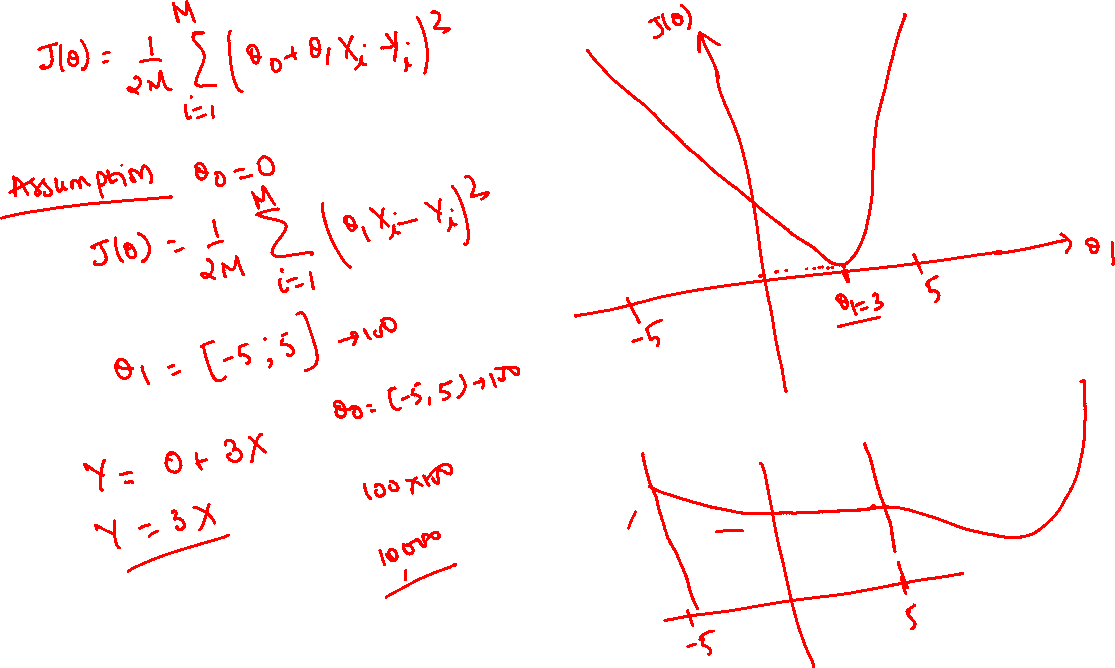 J(θ) = 1/2M M Σ i=1 (θ0 + θ1 Xi - Yi)^2
Assumption θ0 = 0
J(θ) = 1/2M M Σ i=1 (θ1 Xi - Yi)^2
θ1 = [-5, 5] → 100
θ0 = (-5, 5) → 100
Y = 0 + 3X
Y = 3X
100 x 100
10000
J(θ)
θ1
-5
θ1=3
5
-5
5